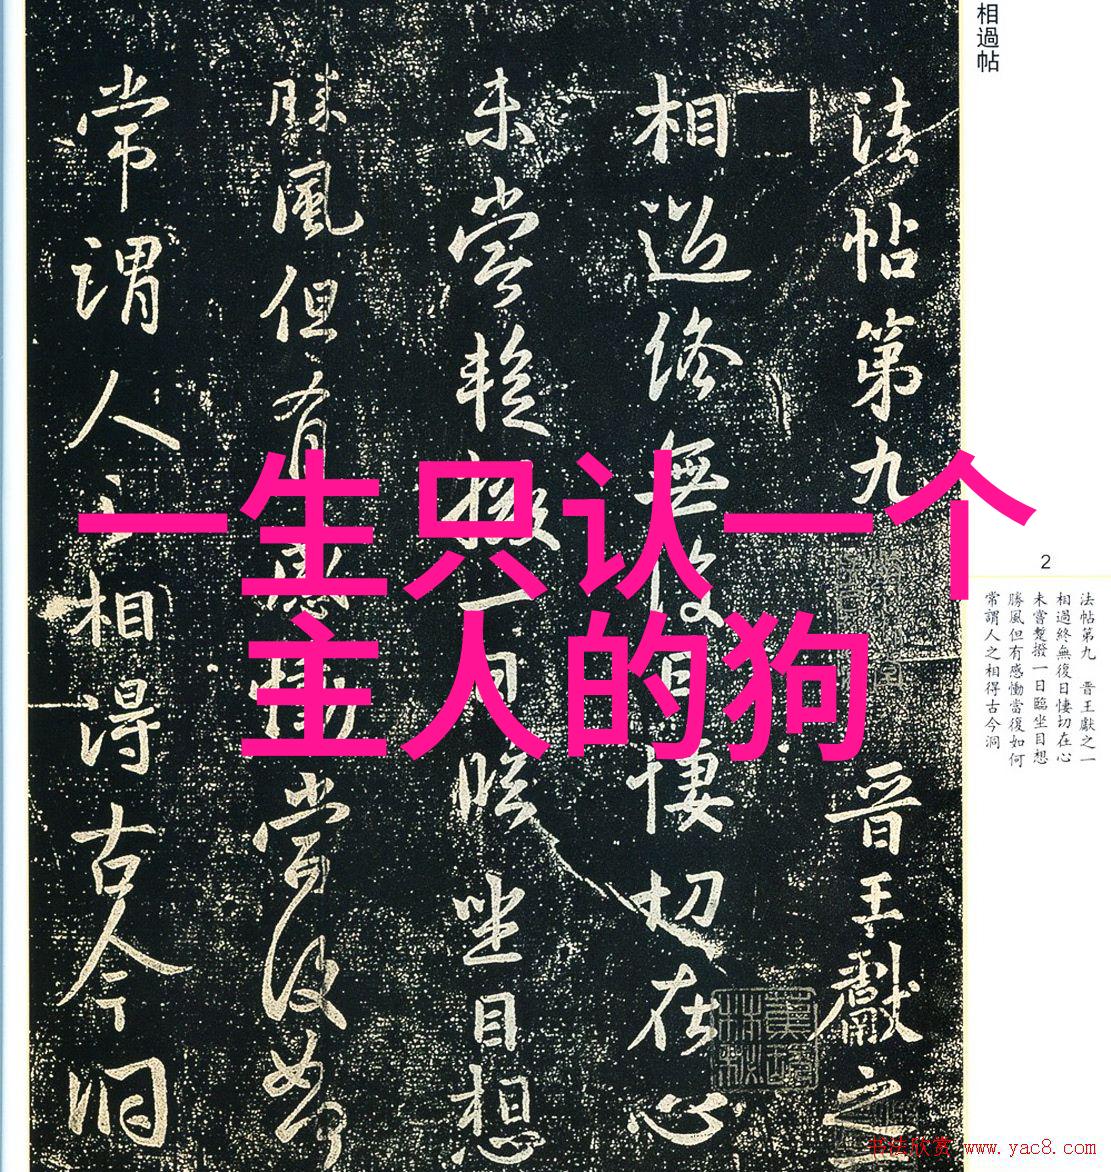 相過帖
法帖第九 晋王獻之
相過終無復日悽切在心
未嘗蹔撥一日臨坐目想
勝風但有感慟當復如何
常謂人之相得古今洞
一生只认一个
主人的狗
2
法帖第九 晋王獻之一
相過終無復日悽切在心
未嘗蹔撥一日臨坐目想
勝風但有感慟當復如何
常謂人之相得古今洞
书法欣赏 www.yac8.com